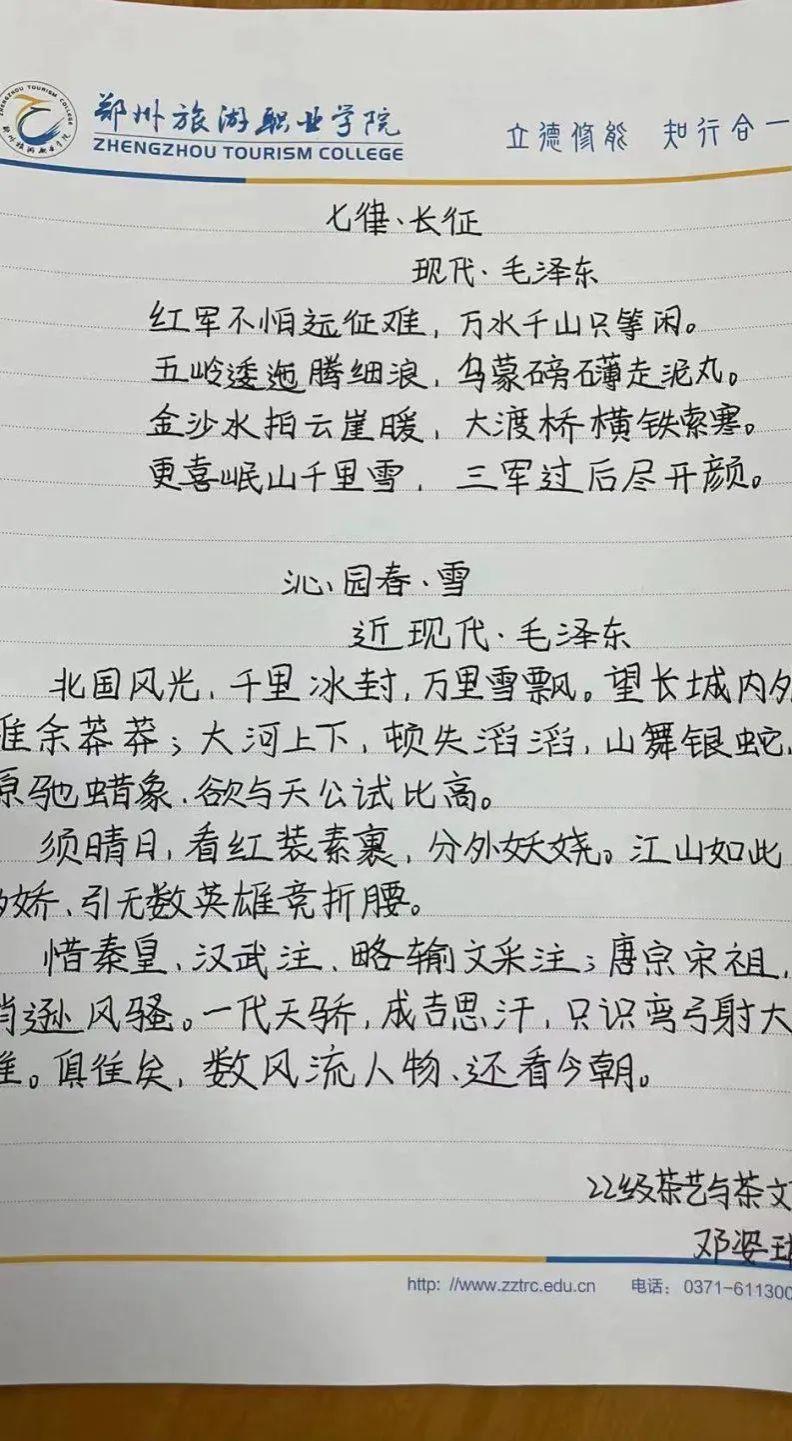 郑州旅游职业学院
ZHENGZHOU TOURISM COLLEGE
立德修能 知行合一
七律·长征
现代·毛泽东
红军不怕远征难，万水千山只等闲。
五岭逶迤腾细浪，乌蒙磅礴走泥丸。
金沙水拍云崖暖，大渡桥横铁索寒。
更喜岷山千里雪，三军过后尽开颜。
沁园春·雪
近现代·毛泽东
北国风光，千里冰封，万里雪飘。望长城内外
惟余莽莽；大河上下，顿失滔滔，山舞银蛇，
原驰蜡象、欲与天公试比高。
须晴日，看红装素裹，分外妖娆。江山如此
多娇、引无数英雄竞折腰。
惜秦皇、汉武注、略输文采注；唐宗宋祖，
稍逊风骚。一代天骄，成吉思汗，只识弯弓射大
雕。俱往矣，数风流人物、还看今朝。
22级茶艺与茶文
邓姿
http: //www.zztrc.edu.cn 电话：0371-611300